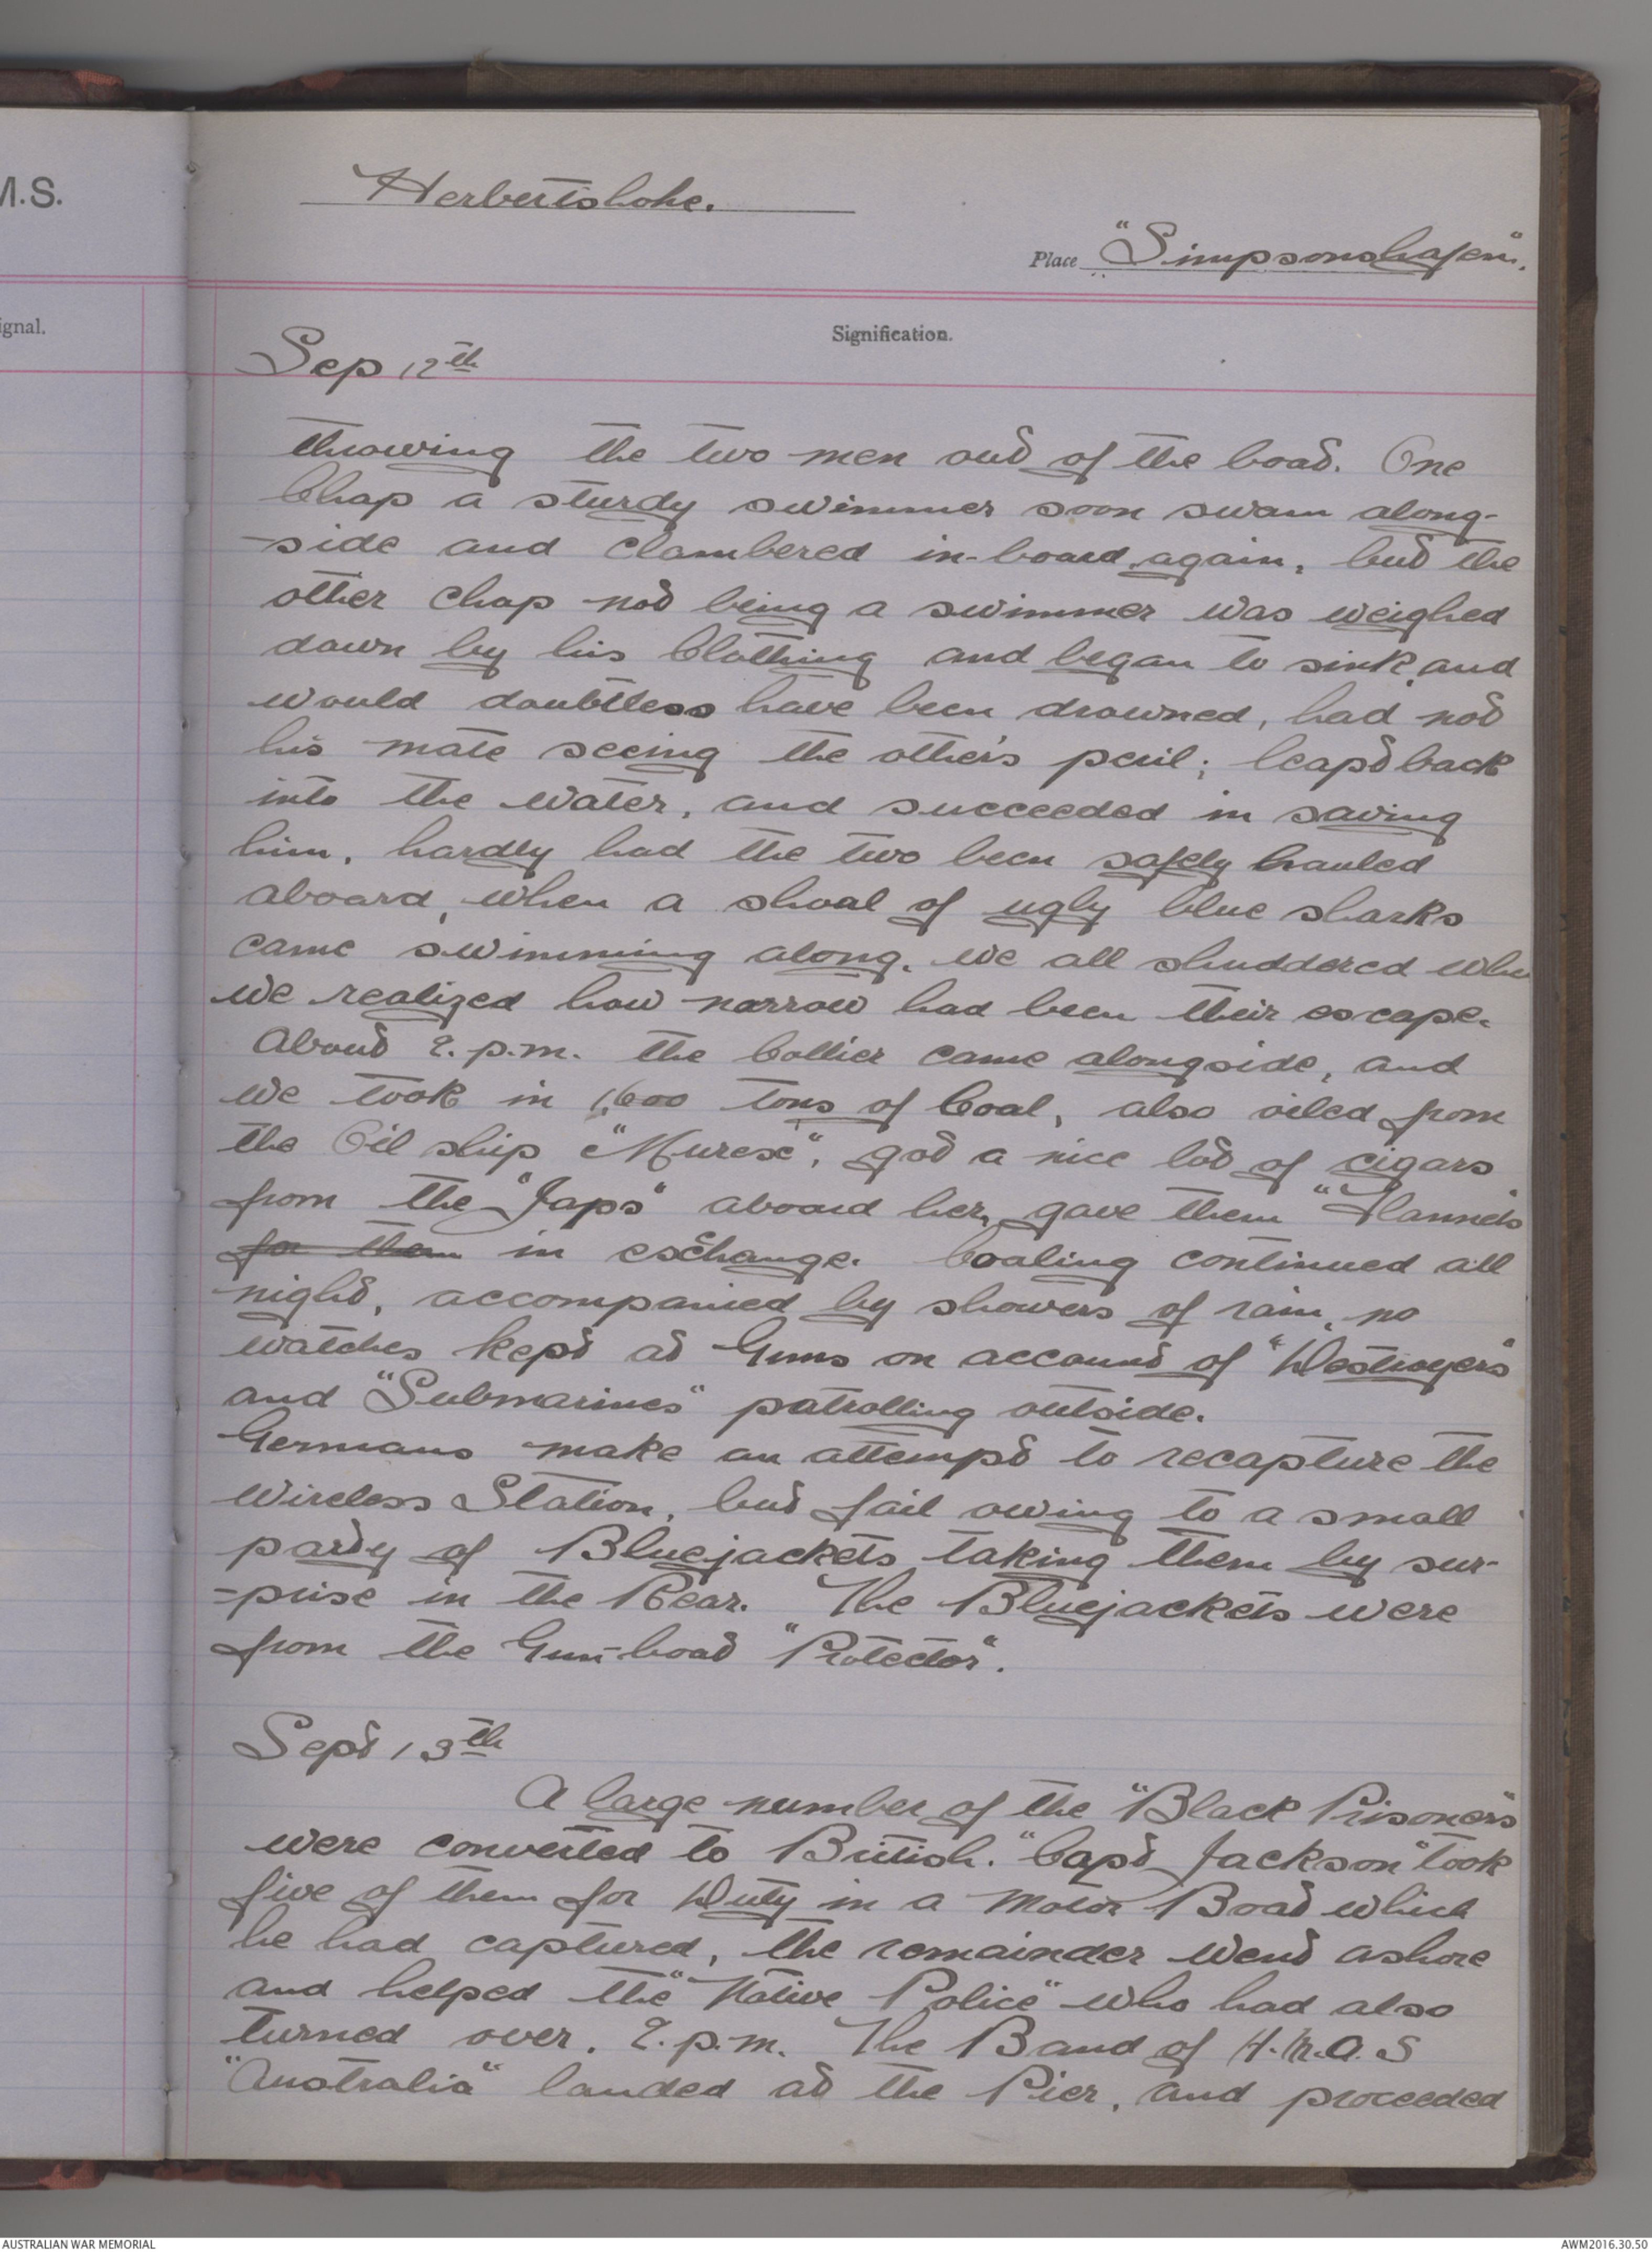 M.S.
ignal.
Herbertshohe.
Place "Simpsonshafen".
Signification.
Sep 12th
throwing the two men out of the boat. One
Chap a sturdy swimmer soon swam along-
-side and clambered in-board again, but the
other chap not being a swimmer was weighed
down by his Clothing and began to sink, and
would doubtless have been drowned, had not
his mate seeing the other's peril; leapt back
into the water, and succeeded in saving
him, hardly had the two been safely hauled
aboard, when a shoal of ugly blue sharks
came swimming along, we all shuddered when
we realized how narrow had been their escape.
About 2.p.m. the Collier came alongside, and
we took in 1,600 tons of Coal, also oiled from
the Oil ship "Murex", got a nice lot of cigars
from the "Japs" aboard her, gave them "Flannels"
for them in exchange. Coaling continued all
night, accompanied by showers of rain, no
watches kept at Guns on account of "Destroyers"
and "Submarines" patrolling outside.
Germans make an attempt to recapture the
Wireless Station, but fail owing to a small
party of Bluejackets taking them by sur-
-prise in the Rear. The Bluejackets were
from the Gun-boat "Protector".
Sept 13th
A large number of the "Black Prisoners"
were converted to British. "Capt Jackson" took
five of them for Duty in a Motor Boat which
he had captured, the remainder went ashore
and helped the "Native Police" who had also
turned over. 2.p.m. The Band of H.M.A.S
"Australia" landed at the Pier, and proceeded
AUSTRALIAN WAR MEMORIAL
AWM2016.30.50